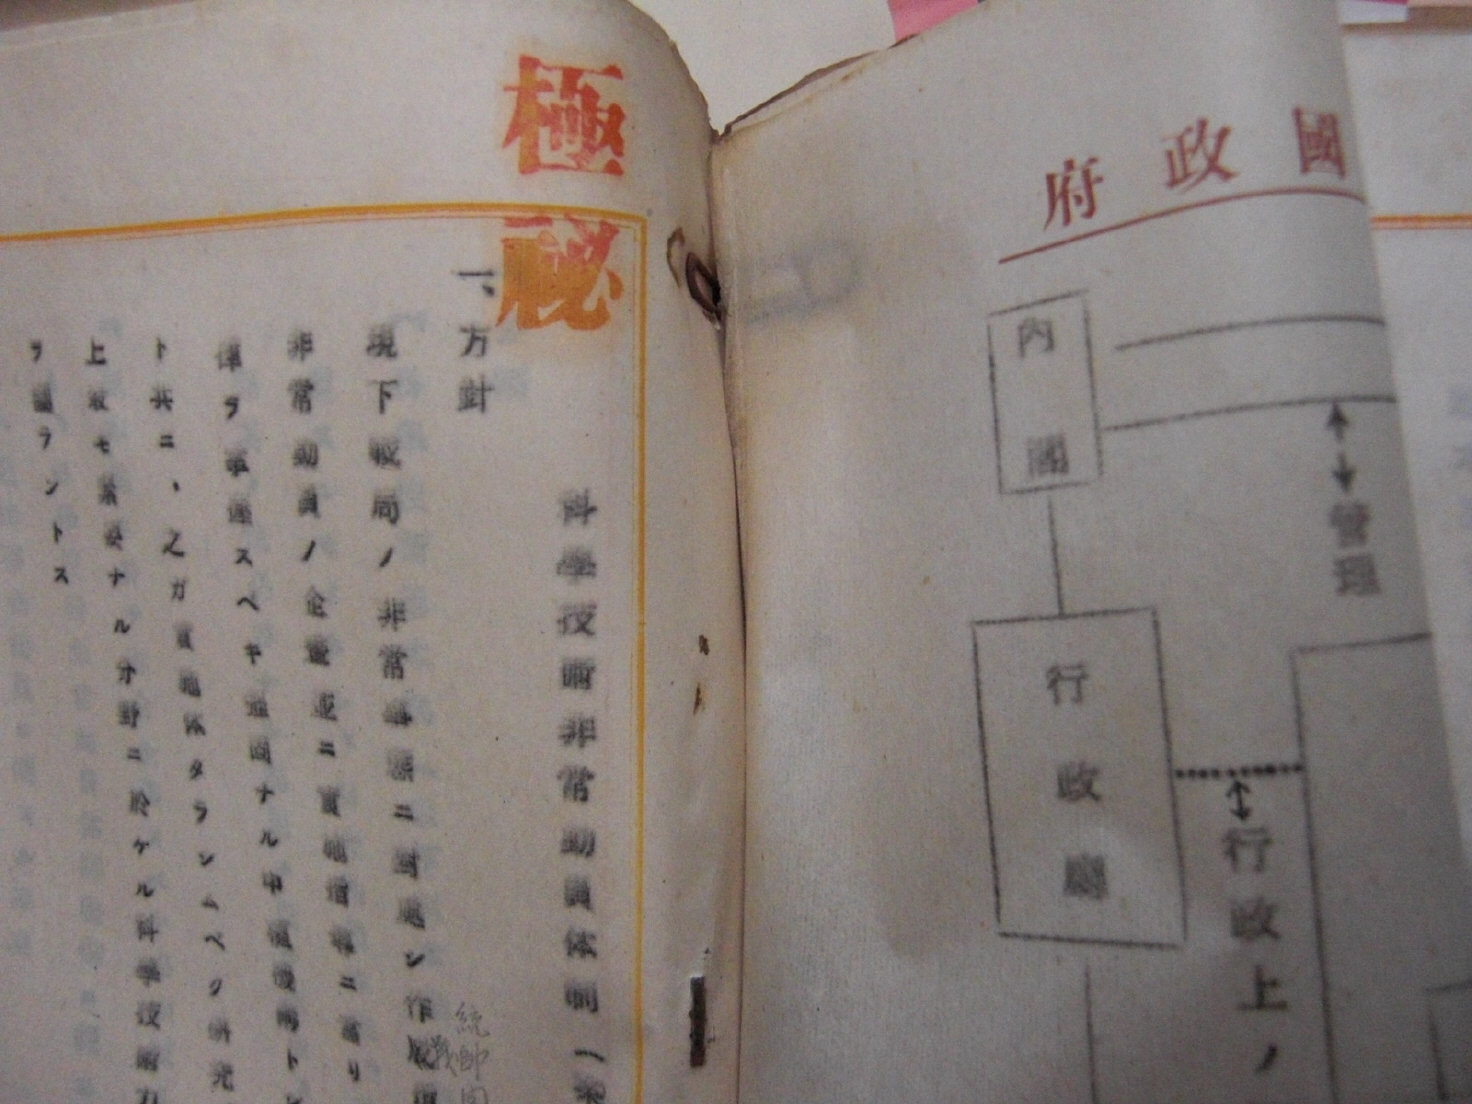 極秘
科學技術非常動員体制一案
一、方針
現下戰局ノ非常事態ニ對處シ作戰
非常動員ノ企畫並ニ實施
スベキ强固ナル中樞機關ト
ト共ニ、之ガ實施体タラシムベク研究
上最モ緊要ナル分野ニ於ケル科學技術力
ヲ圖ラントス
統帥
國政府
內閣
管理
行政廳
行政上ノ